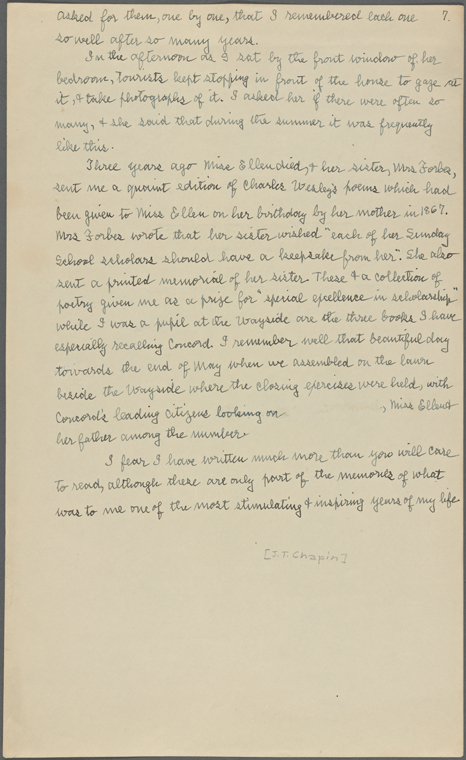 asked for them, one by one, that I remembered each one 7.
so well after so many years.
In the afternoon as I sat by the front window of her
bedroom, tourists kept stopping in front of the house to gaze at
it, & take photographs of it. I asked her if there were often so
many, & she said that during the summer it was frequently
like this.
Three years ago Miss Ellen died, & her sister, Mrs Forbes,
sent me a quaint edition of Charles Wesley's poems which had
been given to Miss Ellen on her birthday by her mother in 1867.
Mrs Forbes wrote that her sister wished "each of her Sunday
School scholars should have a keepsake from her". She also
sent a printed memorial of her sister. These & a collection of
poetry given me as a prize for "special excellence in scholarship"
while I was a pupil at the Wayside are the three books I have
especially recalling Concord. I remember well that beautiful day
towards the end of May when we assembled on the lawn
beside the Wayside where the closing exercises were held, with
Concord's leading citizens looking on , Miss Ellen &
her father among the number.
I fear I have written much more than you will care
to read, although these are only part of the memories of what
was to me one of the most stimulating & inspiring years of my life.
[J.T. Chapin]